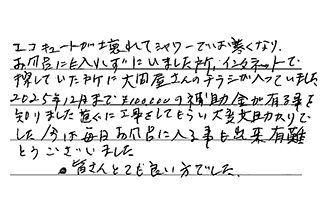 エコキュートが壊れてシャワーでは寒くなり
お風呂にも入れずにいました所、インタネットで
探していた所に大田屋さんのチラシが入っていました
2025年12月まで¥100000の補助金が有る事を
知りました直ぐに工事をしてもらい大変助かりで
した 今は毎日お風呂に入る事も出来 有難
とうございました
皆さんとても良い方でした.